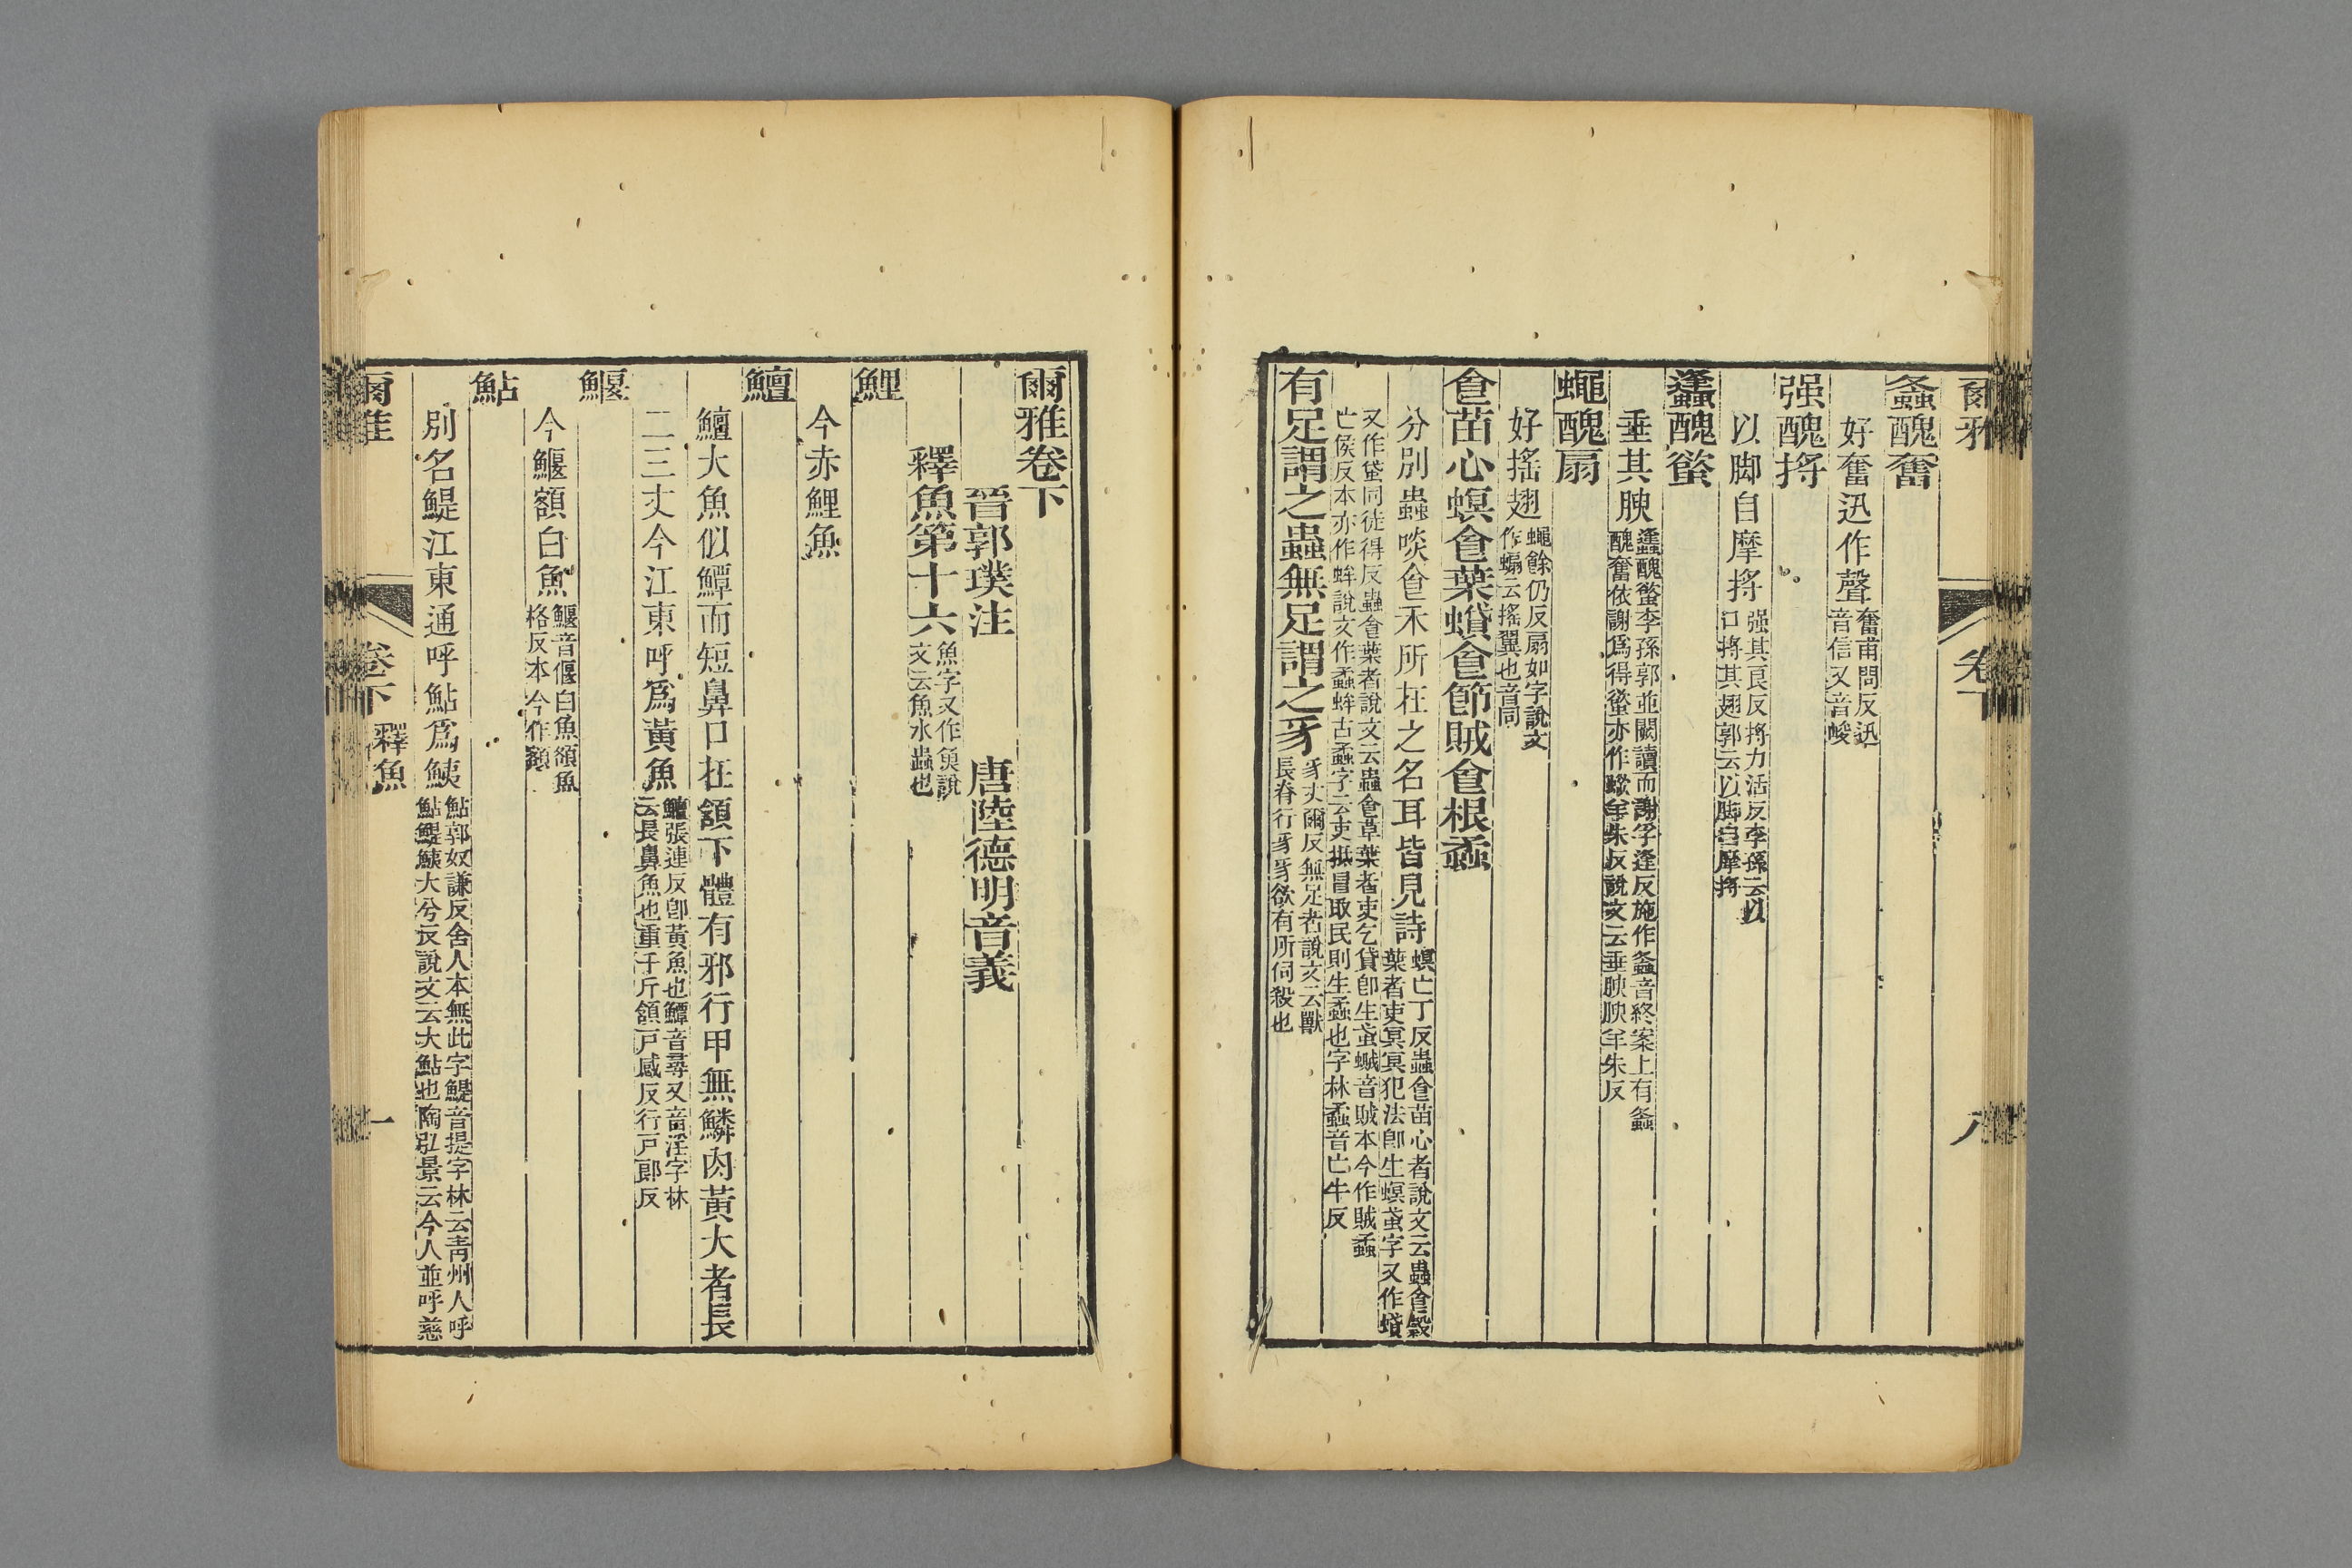 爾雅
卷下
八
螽醜奮
好奮迅作聲奮甫問反迅
音信又音峻
强醜捋
以脚自摩捋强其良反捋力活反李孫云以
口捋其翅郭云以脚自摩捋
蠭醜螸
垂其腴蠭醜螸李孫郭並闕讀而謝孚逢反施作螽音終案上有螽
醜奮依謝爲得螸亦作蠍羊朱反說文云垂腴腴羊朱反
蠅醜扇
好搖翅蠅餘仍反扇如字說文
作蝙云搖翼也音同
食苗心螟食葉蟘食節賊食根蟊
分別蟲啖食禾所在之名耳皆見詩螟亡丁反蟲食苗心者說文云蟲食穀
葉者吏冥冥犯法卽生螟蟘字又作蟘
又作蟘同徒得反蟲食葉者說文云蟲食草葉者吏乞貸卽生蟘蠈音賊本今作賊蟊
亡侯反本亦作蛑說文作蟊蛑古蟊字云吏抵冒取民則生蟊也字林蟊音亡牛反
有足謂之蟲無足謂之豸豸丈爾反無足者說文云獸
長脊行豸豸欲有所伺殺也
爾雅卷下
晉郭璞注 唐陸德明音義
釋魚第十六魚字又作𩵋說
文云魚水蟲也
鯉
今赤鯉魚
鱣
鱣大魚似鱏而短鼻口在頷下體有邪行甲無鱗肉黃大者長
二三丈今江東呼爲黃魚鱣張連反卽黃魚也鱏音尋又音淫字林
云長鼻魚也重千斤頷戶感反行戶郎反
鰋
今鰋額白魚鰋音偃白魚頟魚
格反本今作額
鮎
別名鯷江東通呼鮎爲鮧鮎郭奴謙反舍人本無此字鯷音提字林云青州人呼
鮎鯷鮧大兮反說文云大鮎也陶弘景云今人並呼慈
爾雅
卷下 釋魚
一